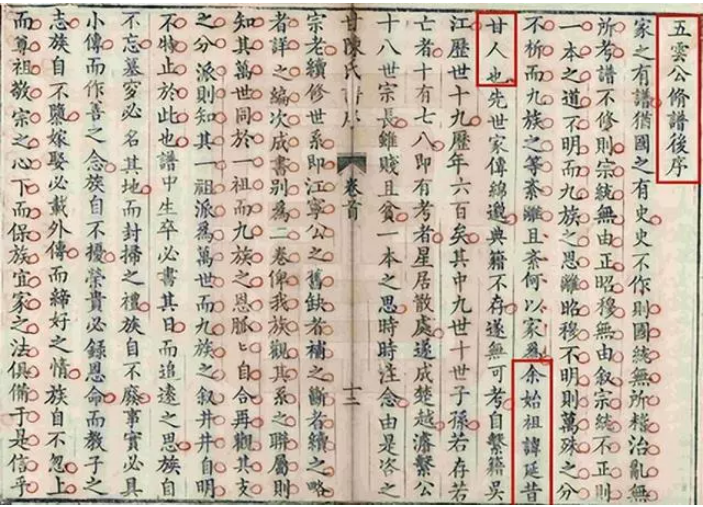 五雲公脩譜後序
家之有譜猶國之有史史不作則國統無所稽治亂無
所考譜不修則宗統無由正昭穆無由叙宗統不正則
一本之道不明而九族之恩離昭穆不明則萬殊之分
不析而九族之等紊離且紊何以家爲余始祖諱延昔
甘人也先世家傳綿邈典籍不存遂無可考自繫籍吳
江歷世十九歷年六百矣其中九世十世子孫若存若
亡者十有七八即有考者星居散處遂成楚越濬繫公
十八世宗長雖賤且貧一本之思時時注念由是咨之
甘陳氏譜序
卷首
十二
宗老續修世系即江寧公之舊缺者補之斷者續之略
者詳之編次成書别爲二卷俾我族觀其系之聯屬則
知其萬世同於一祖而九族之恩脈ヒ自合再觀其支
之分派則知其一祖派爲萬世而九族之叙井井自明
不特止於此也譜中生卒必書其日而追遠之思族自
不忘墓穸必名其地而封掃之禮族自不廢事實必具
小傳而作善之念族自不擾榮貴必録恩命而教子之
志族自不墮嫁娶必載外傳而締好之情族自不忽上
而尊祖敬宗之心下而保族宜家之法俱備于是信乎